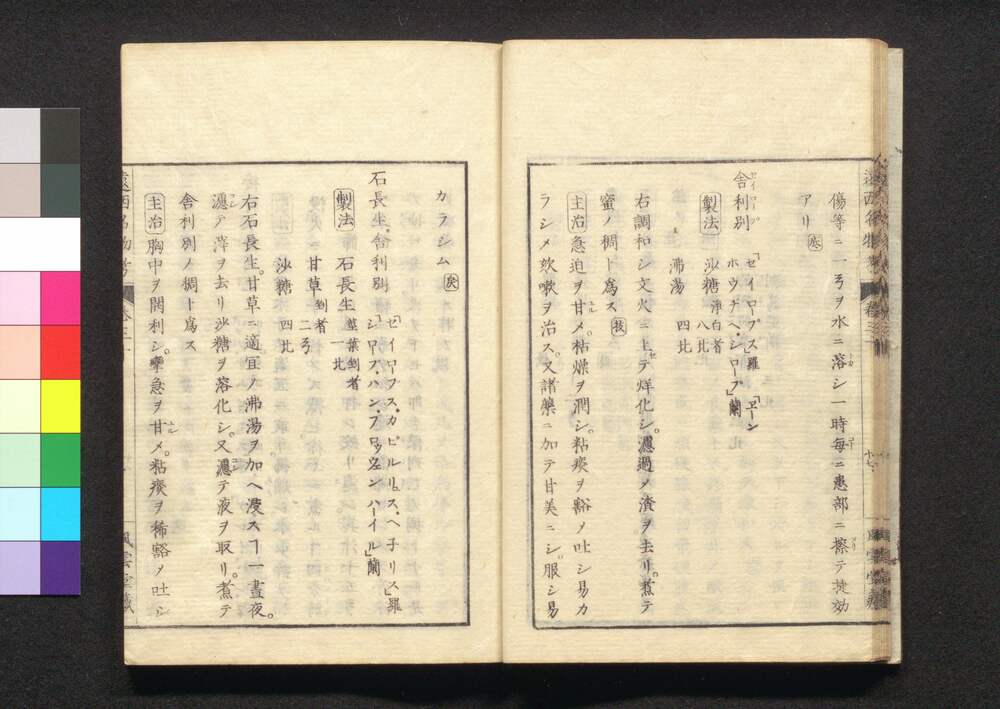 傷等ニ一弓ヲ水ニ溶シ一時毎ニ患部ニ擦テ捷効
アリ
舎利別 「セイロープス」羅 「ヱーン
ホウヂヘ・シロープ」蘭
製法 沙糖 浄白者 八比
沸湯 四比
右調和シ文火ニ上テ烊化シ。濾過メ渣ヲ去リ。煮テ
蜜ノ稠ト爲ス
主治 急迫ヲ甘メ。枯燥ヲ潤シ。粘痰ヲ豁メ吐シ易カ
ラシメ欬嗽ヲ治ス。又諸藥ニ加テ甘美ニシ服シ易
カラシム
石長生舎利別 「セイロープス・カピルリュス・ヘ子リス」羅
「シロープ・ハン・フロウヱンハーイル」蘭
製法 石長生 莖葉剉者 一比
甘草 剉者 二弓
沙糖 四比
右石長生。甘草ニ適宜ノ沸湯ヲ加ヘ浸スヿ一晝夜。
濾テ滓ヲ去リ沙糖ヲ溶化シ。又濾テ液ヲ取リ。煮テ
舎利別ノ稠ト爲ス
主治 胸中ヲ開利シ。攣急ヲ甘メ。粘痰ヲ稀豁メ吐シ
遠西名物考
風雲堂藏